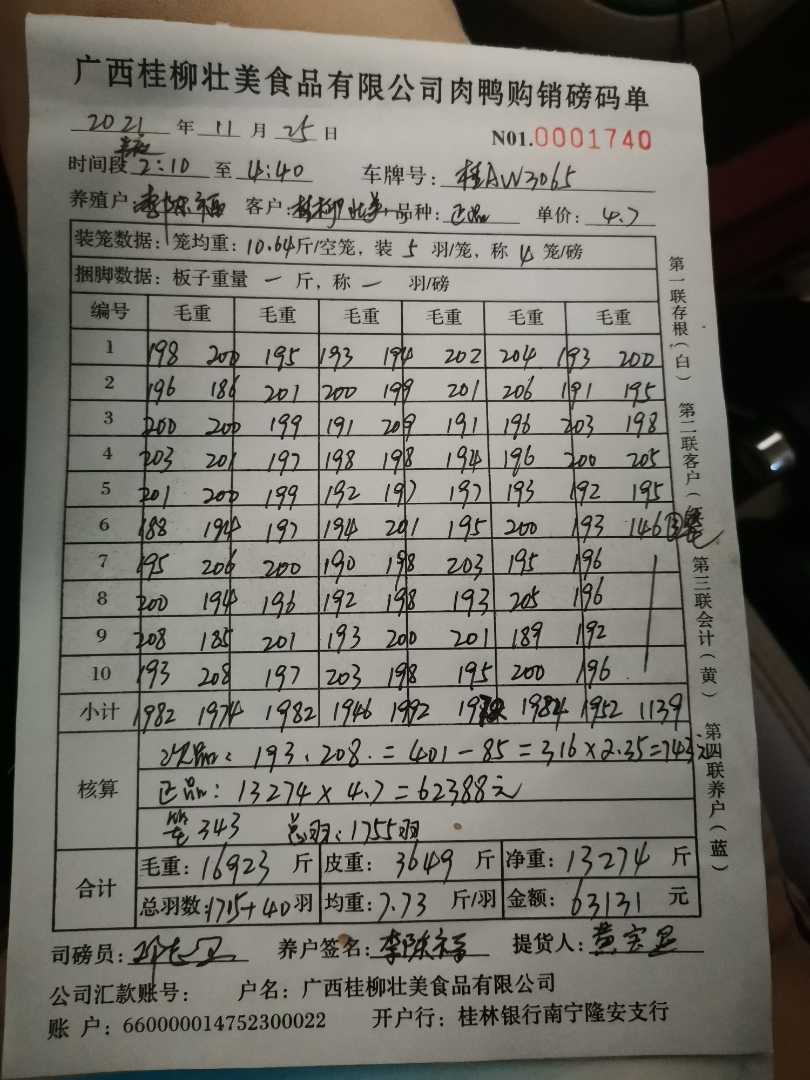 广西桂柳壮美食品有限公司肉鸭购销磅码单
2021 年 11 月 25 日 N01.0001740
时间段 2:10 至 4:40 车牌号: 桂AW3065
养殖户: 李陈福 客户: 桂柳壮美 品种: 正品 单价: 4.7
装笼数据: 笼均重: 10.64斤/空笼, 装 5 羽/笼, 称 4 笼/磅
捆脚数据: 板子重量 一 斤, 称 一 羽/磅
编号 毛重 毛重 毛重 毛重 毛重 毛重
1 198 200 195 193 194 202 204 193 200
2 196 186 201 200 199 201 206 191 195
3 200 200 199 191 209 191 196 203 198
4 203 201 197 198 198 194 196 200 205
5 201 200 199 192 197 197 193 192 195
6 188 194 197 194 201 195 200 193 146 ③笼
7 195 206 200 190 198 203 195 196
8 200 194 196 192 198 193 205 196
9 208 185 201 193 200 201 189 192
10 193 208 197 203 198 195 200 196
小计 1982 1974 1982 1946 1992 1984 1952 1139
核算
次品: 193.208.=401-85=316×2.35=743元
正品: 13274×4.7=62388元
笼343 总羽:1755羽
合计
毛重: 16923 斤 皮重: 3649 斤 净重: 13274 斤
总羽数: 1715+40羽 均重: 7.73 斤/羽 金额: 63131 元
司磅员: 养户签名: 李陈福 提货人: 黄
公司汇款账号: 户名: 广西桂柳壮美食品有限公司
账 户: 660000014752300022 开户行: 桂林银行南宁隆安支行
第一联存根(白) 第二联客户(红) 第三联会计(黄) 第四联养户(蓝)